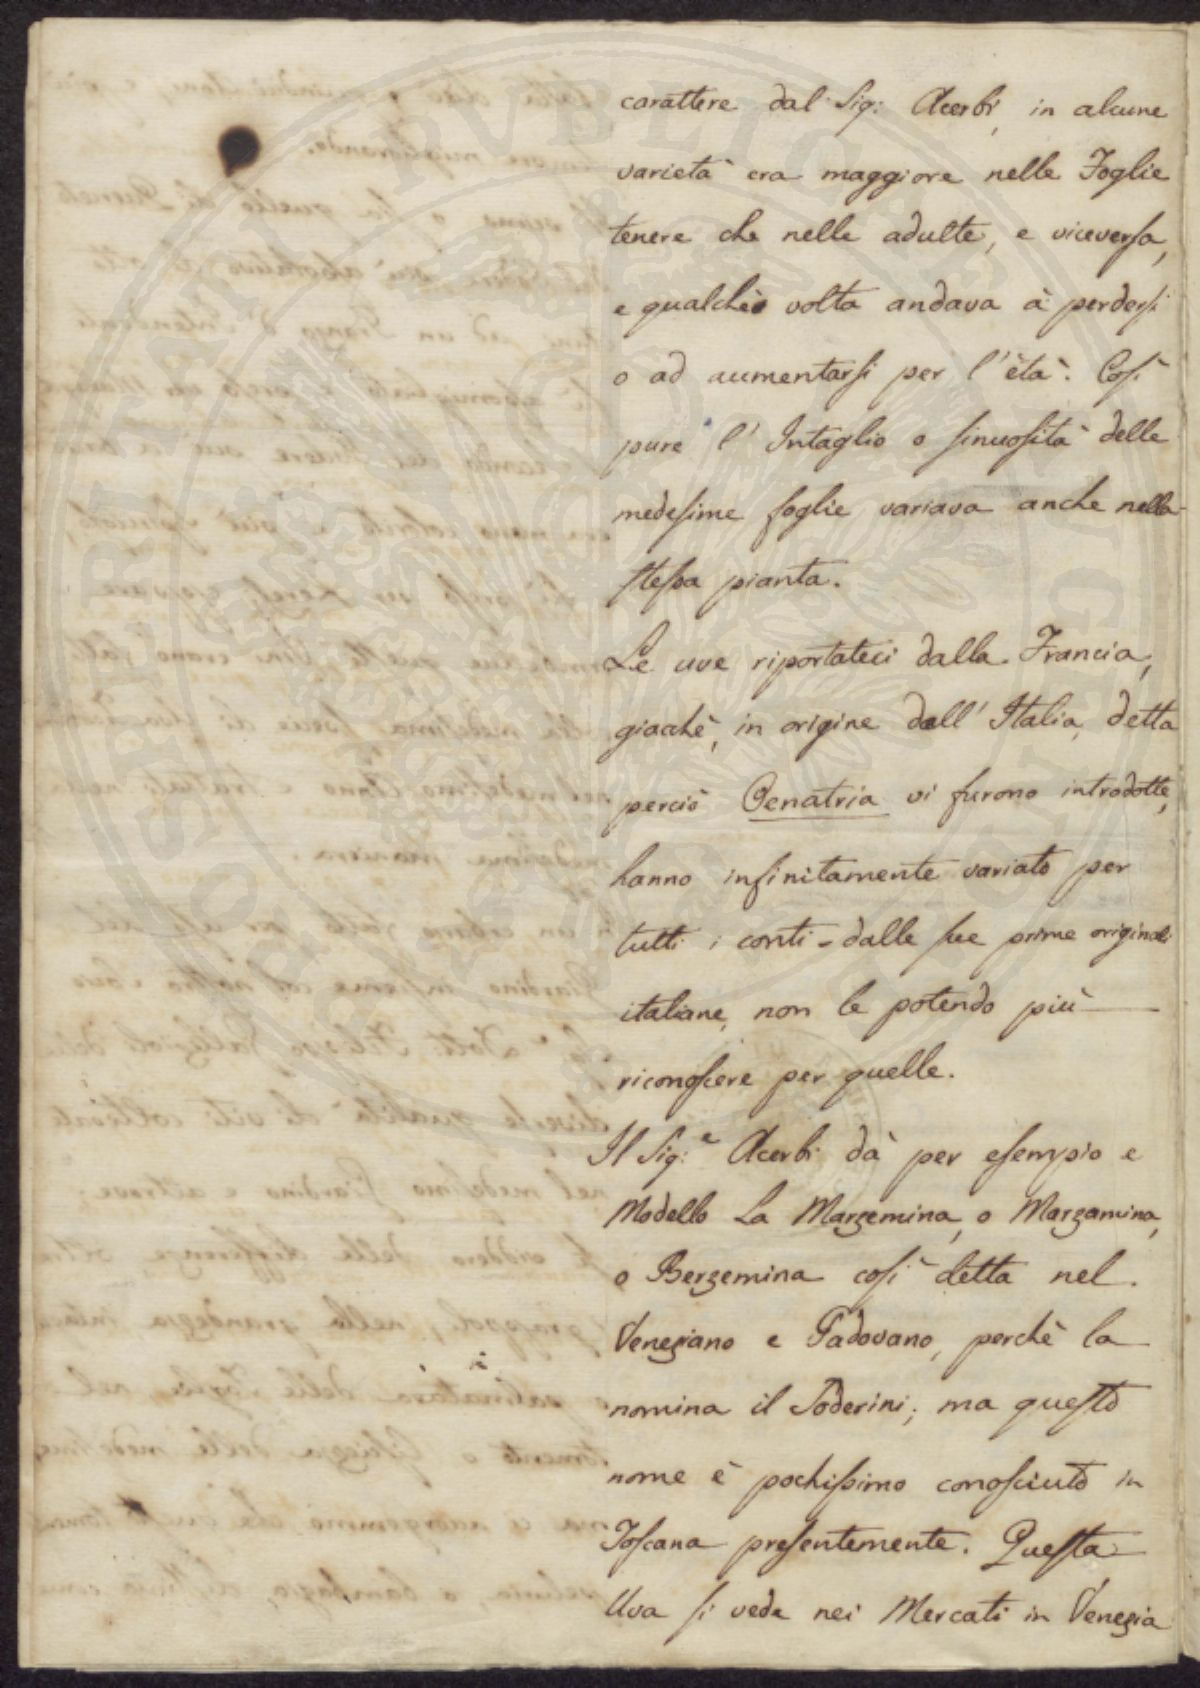 carattere dal Sig: Acerbi, in alcune
varietà era maggiore nelle Foglie
tenere che nelle adulte, e viceversa,
e qualche volta andava à perdersi
o ad aumentarsi per l'età. Così
pure l'Intaglio o sinuosità delle
medesime foglie variava anche nella
stessa pianta.
Le uve riportateci dalla Francia,
giacchè, in origine dall'Italia, detta
perciò Oenatria vi furono introdotte,
hanno infinitamente variato per
tutti i conti dalle sue prime originali
italiane, non le potendo più
riconoscere per quelle.
Il Sig:e Acerbi dà per esempio e
Modello La Marzemina, o Marzamina,
o Berzemina così detta nel
Veneziano e Padovano, perchè la
nomina il Soderini; ma questo
nome è pochissimo conosciuto in
Toscana presentemente. Questa
Uva si vede nei Mercati in Venezia